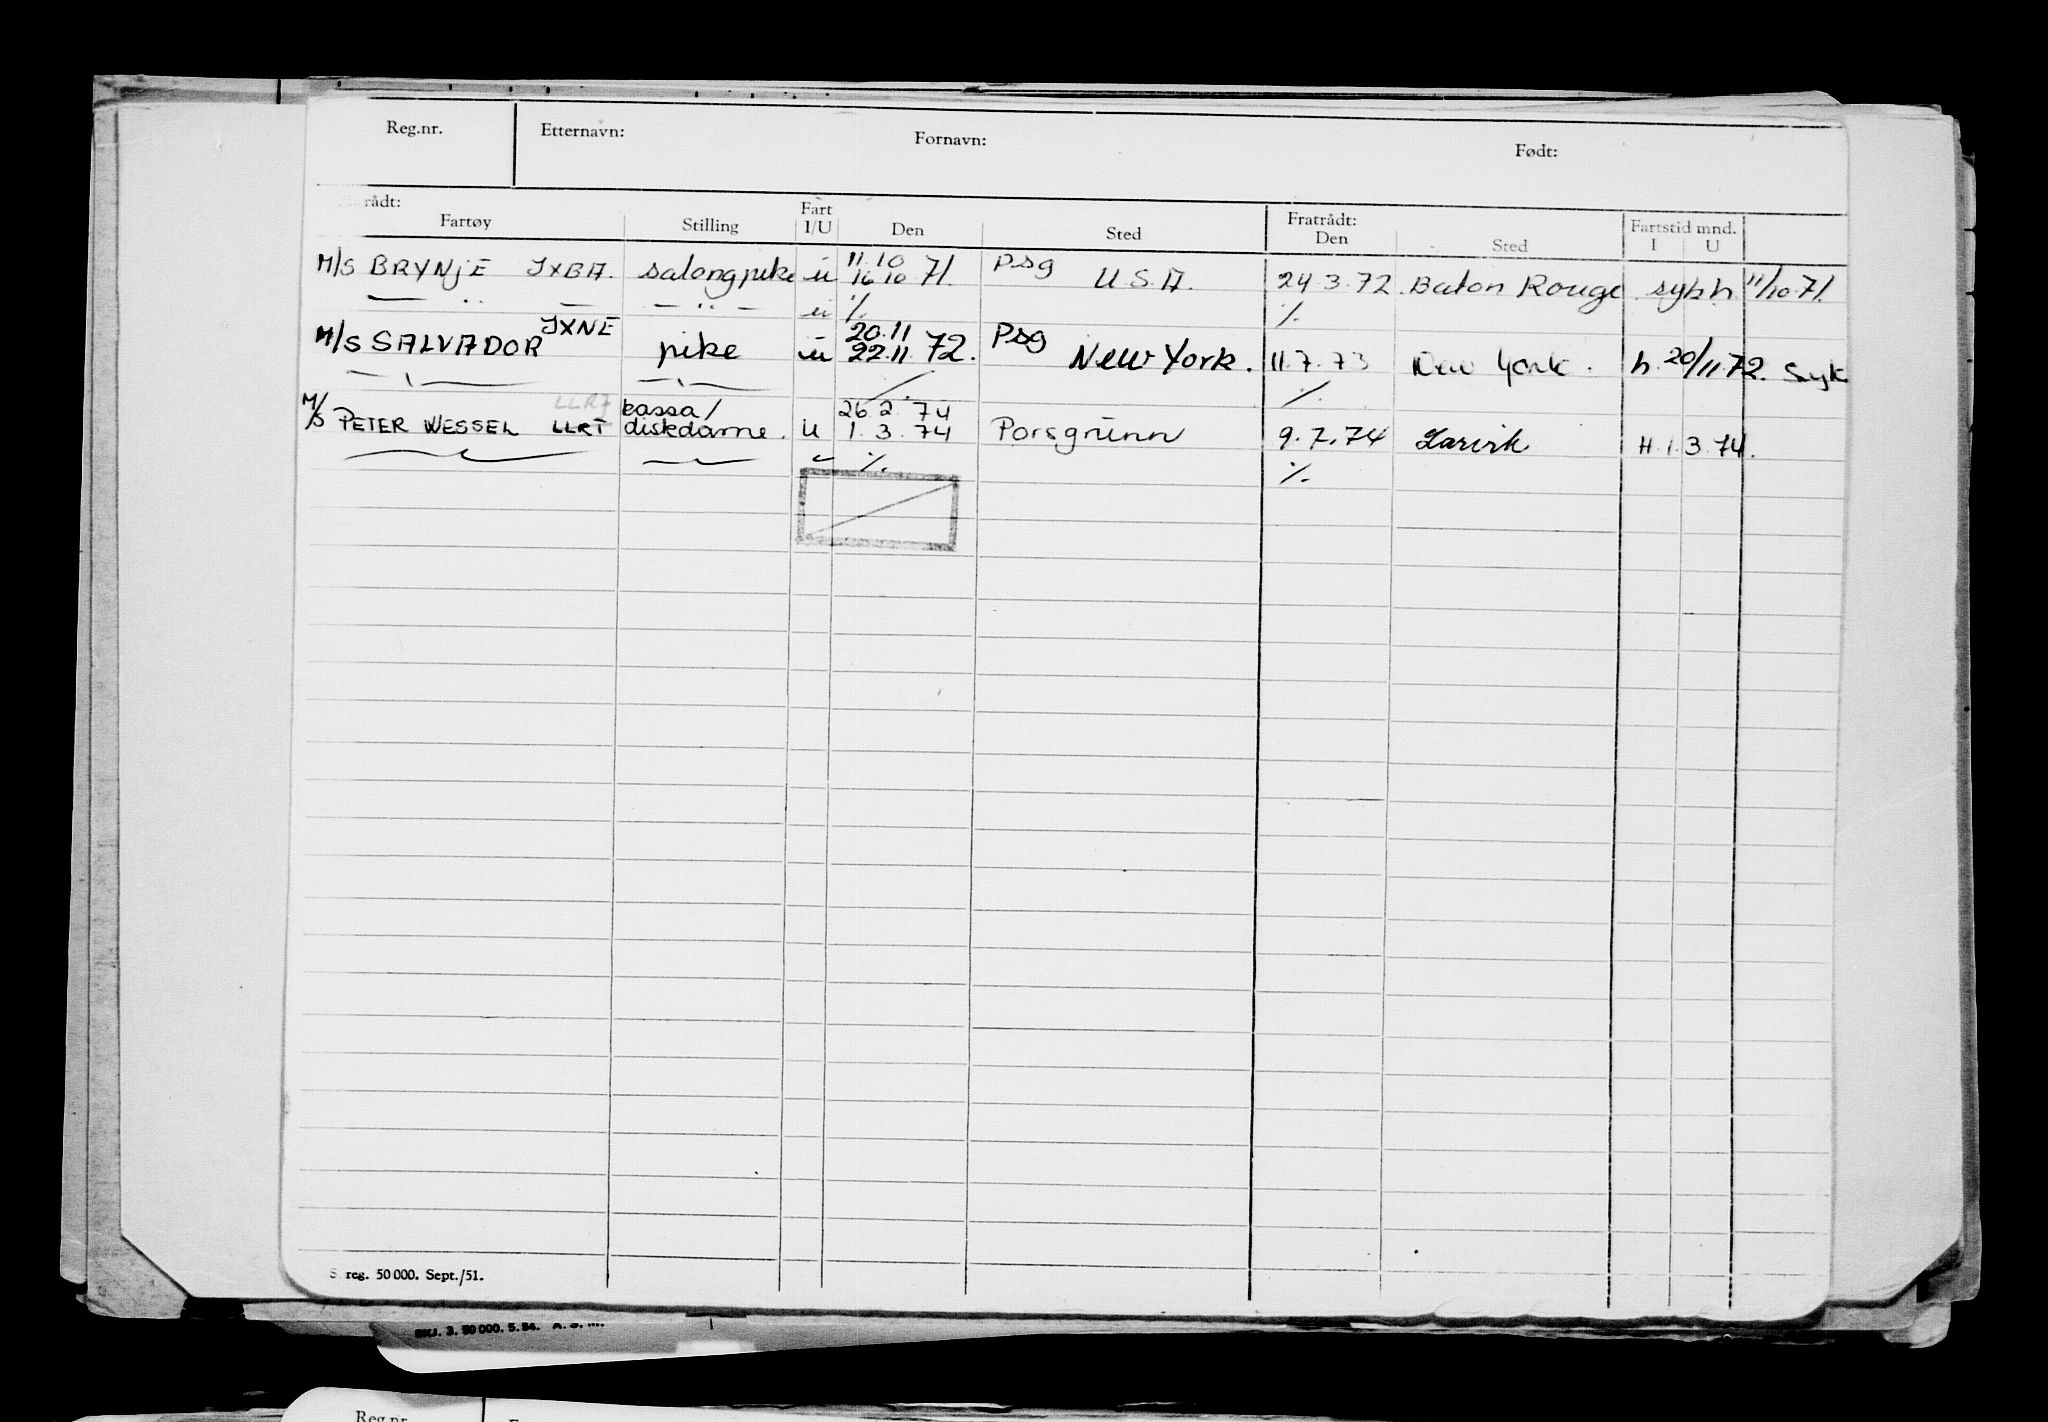 Reg.nr. Etternavn: Fornavn: Født:
rådt: Fratrådt:
Fartøy Stilling Fart I/U Den Sted Den Sted Fartstid mnd. I U
M/S BRYNJE JXBA. salongpike u 11.10 16.10 71. Psg U.S.A. 24.3.72. Baton Rouge sykh 11/10.71.
— " — — " — u ·/. ·/.
M/S SALVADOR JXNE pike u 20.11 22.11 72. Psg New York. 11.7.73 New York. h. 20/11.72. Syk
·/. ·/.
M/S PETER WESSEL LLRT kassa/ diskdame. u 26.2.74 1.3.74 Porsgrunn 9.7.74 Larvik H.1.3.74.
·/. ·/.
S.reg. 50 000. Sept./51.
SKJ. 3. 50 000. 5. 54.
Reg.nr.